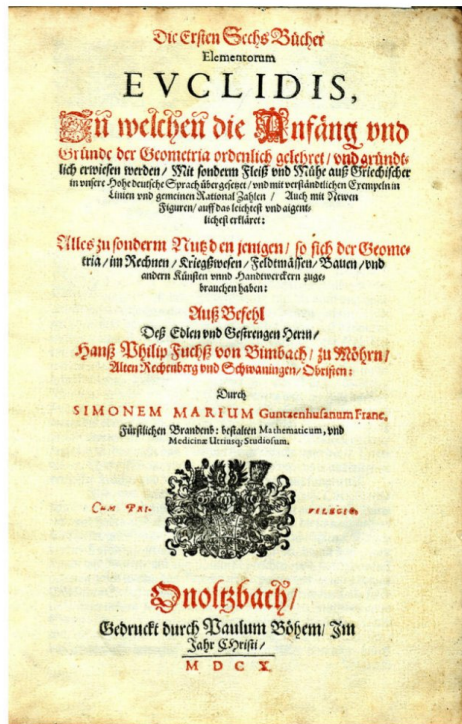 Die Ersten Sechs Bücher
Elementorum
EVCLIDIS,
In welchen die Anfäng vnd
Gründe der Geometria ordenlich gelehret / vnd gründt-
lich erwiesen werden / Mit sonderm Fleiß vnd Mühe auß Griechischer
in vnsere Hohe deutsche Sprach übergesetzt / vnd mit verständtlichen Exempeln in
Linien vnd gemeinen Rational Zahlen / Auch mit Newen
Figuren / auff das leichtest vnd aigent-
lichest erkläret:
Alles zu sonderm Nutz den jenigen / so sich der Geome-
tria / im Rechnen / Kriegßwesen / Feldtmässen / Bauen / vnd
andern Künsten vnnd Handtwerckern zuge-
brauchen haben:
Auß Befehl
Deß Edlen vnd Gestrengen Herrn /
Hanß Philip Fuchß von Bimbach / zu Möhrn /
Alten Rechenberg vnd Schwaningen / Obristen:
Durch
SIMONEM MARIUM Guntzenhusanum Franc.
Fürstlichen Brandenb: bestalten Mathematicum, vnd
Medicinæ Utriusq; Studiosum.
CUM PRI- VILEGIO.
Onoltzbach /
Gedruckt durch Paulum Böhem / Im
Jahr CHristi /
M D C X.